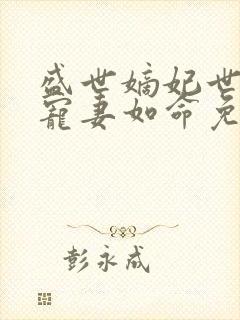 盛世嫡妃世
宠妻如命免
彭永成